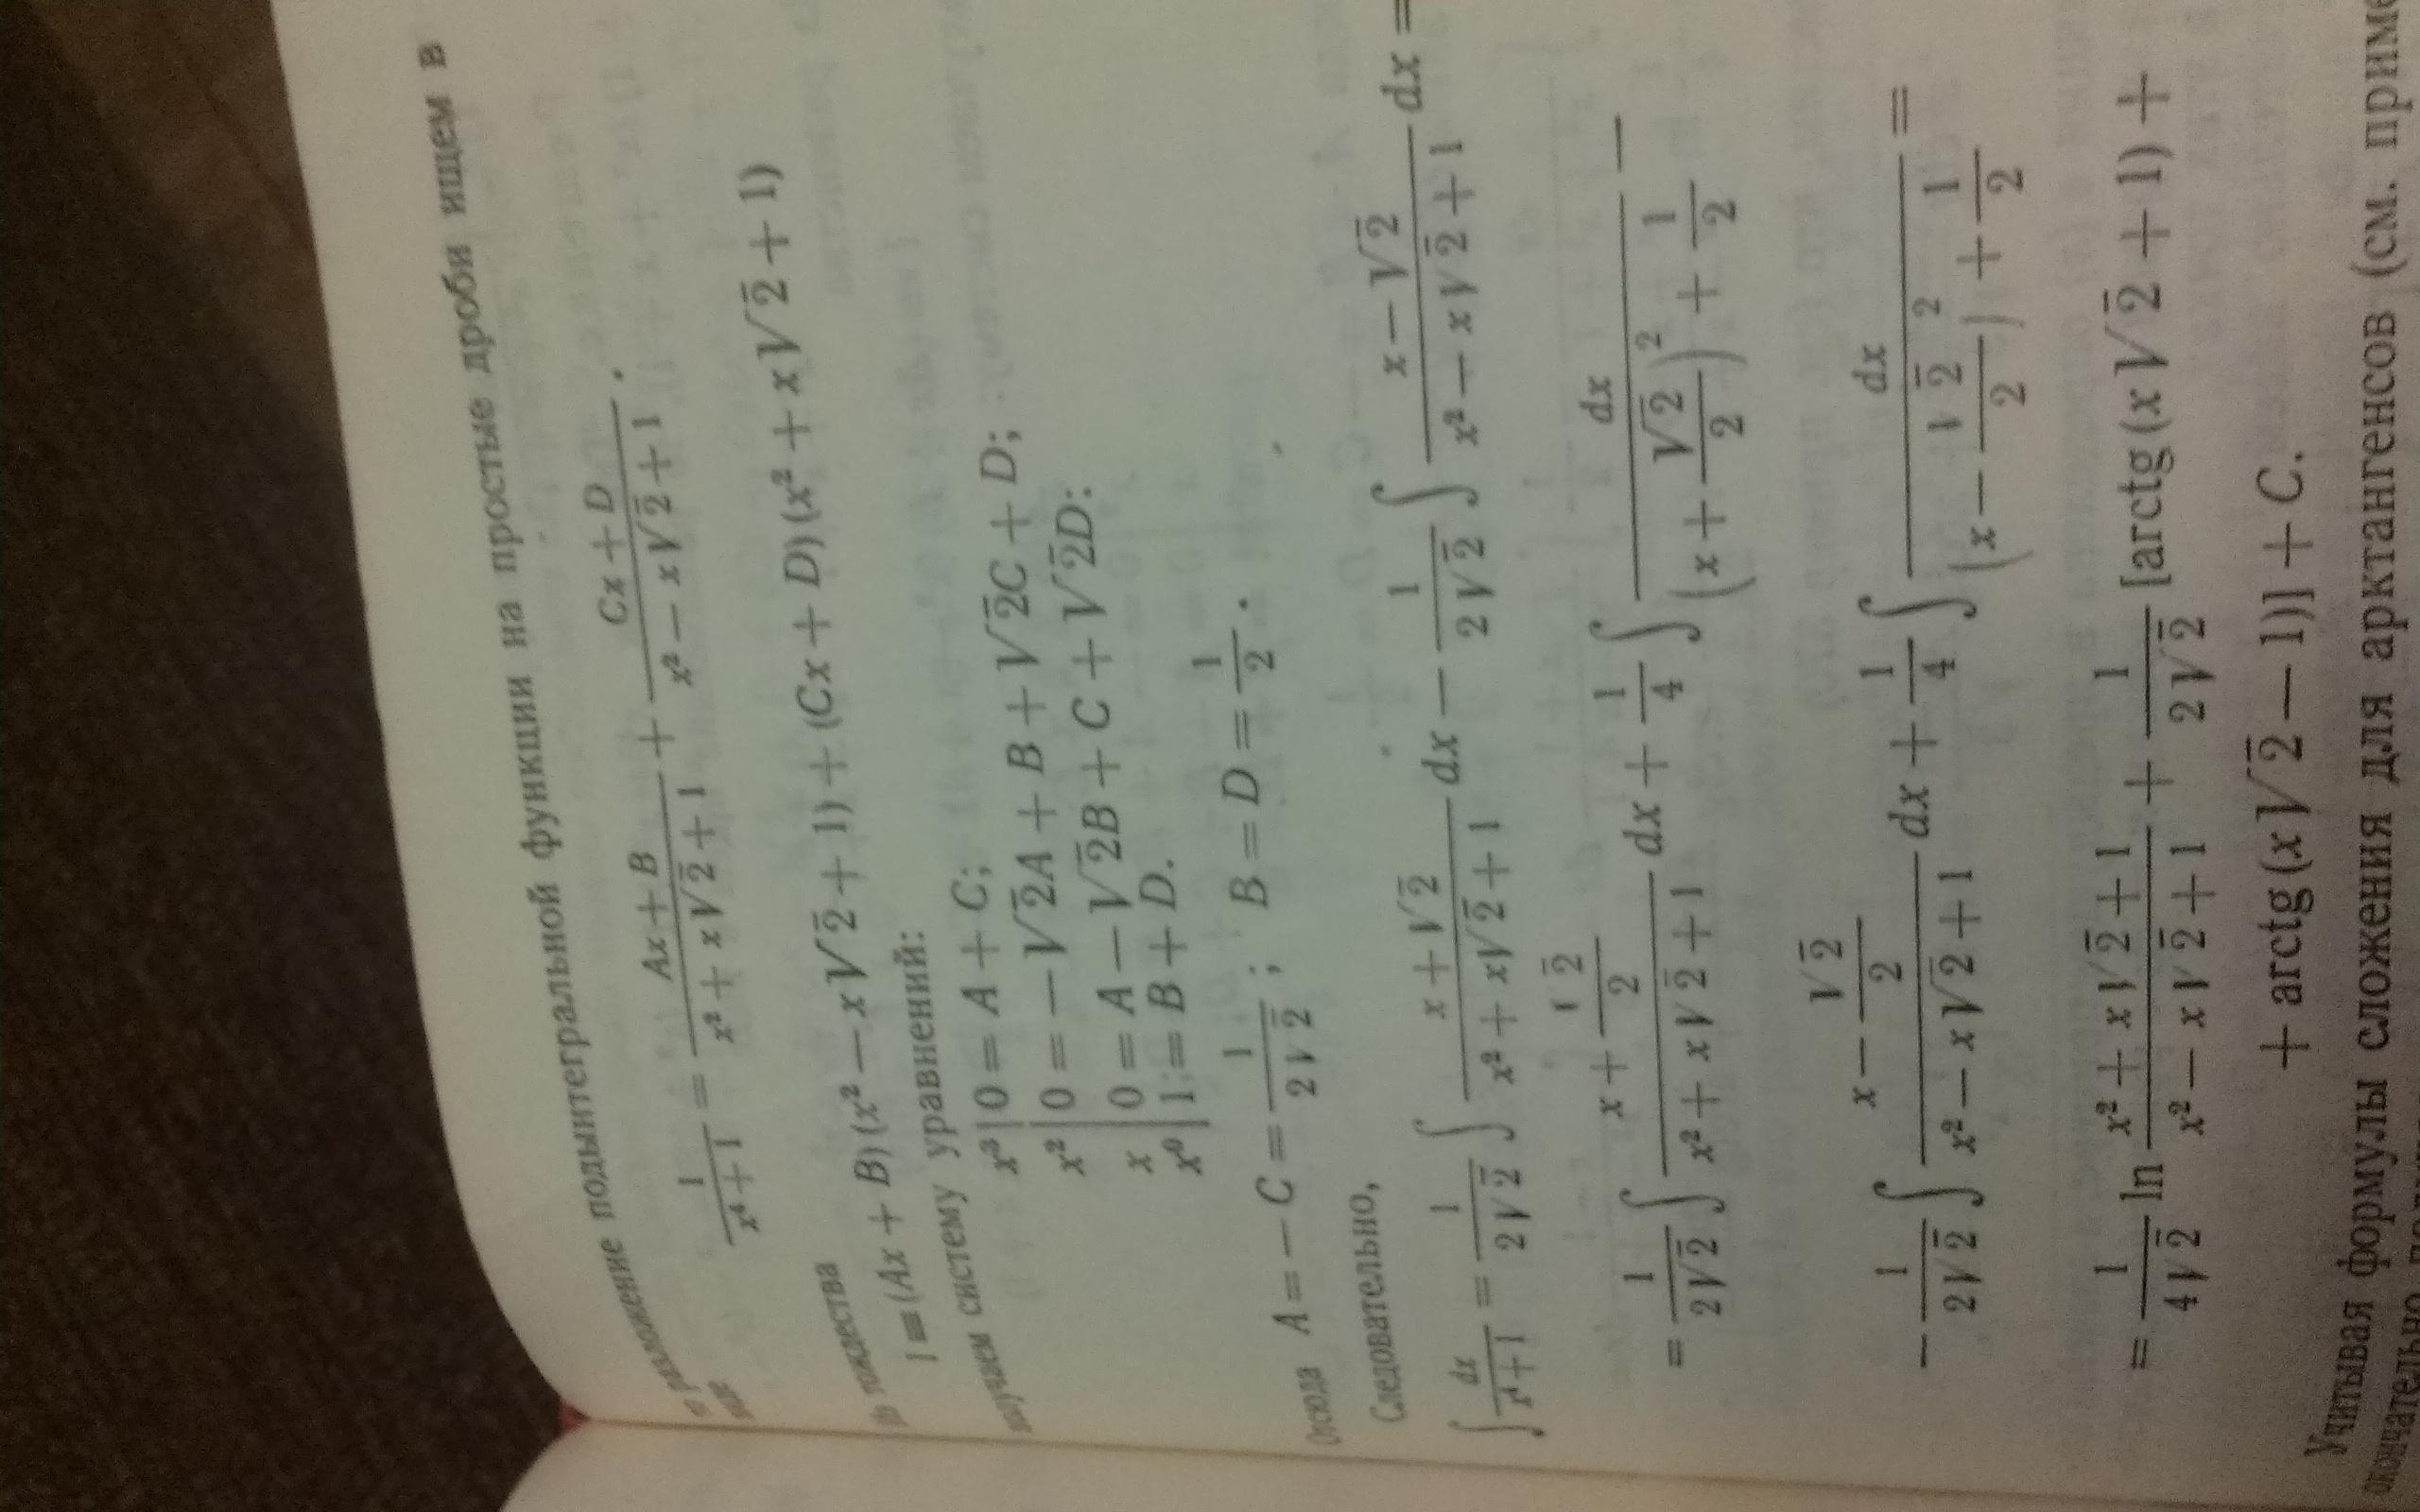 разложение подынтегральной функции на простые дроби ищем в
виде
\frac{1}{x⁴+1} = \frac{Ax+B}{x²+x√2+1} + \frac{Cx+D}{x²−x√2+1}.
Из тождества
1≡(Ax+B)(x²−x√2+1)+(Cx+D)(x²+x√2+1)
получаем систему уравнений:
x³|0=A+C;
x²|0=−√2A+B+√2C+D;
x|0=A−√2B+C+√2D:
x⁰|1=B+D.
Отсюда A=−C=\frac{1}{2√2}; B=D=\frac{1}{2}.
Следовательно,
∫\frac{dx}{x⁴+1} = \frac{1}{2√2}∫\frac{x+√2}{x²+x√2+1}dx − \frac{1}{2√2}∫\frac{x−√2}{x²−x√2+1}dx =
= \frac{1}{2√2}∫\frac{x+\frac{√2}{2}}{x²+x√2+1}dx + \frac{1}{4}∫\frac{dx}{(x+\frac{√2}{2})²+\frac{1}{2}} −
− \frac{1}{2√2}∫\frac{x−\frac{√2}{2}}{x²−x√2+1}dx + \frac{1}{4}∫\frac{dx}{(x−\frac{√2}{2})²+\frac{1}{2}} =
= \frac{1}{4√2} ln \frac{x²+x√2+1}{x²−x√2+1} + \frac{1}{2√2}[arctg(x√2+1)+
+arctg(x√2−1)]+C.
Учитывая формулы сложения для арктангенсов (см.
окончательно